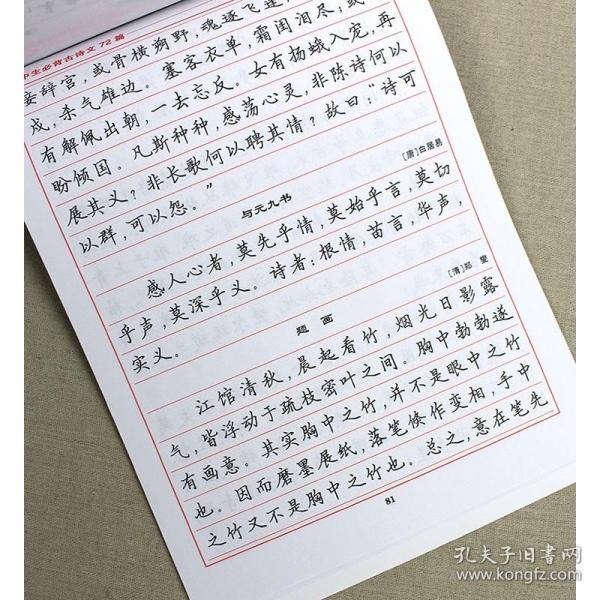 中生必背古诗文72篇
妾辞宫,或骨横朔野,魂逐飞蓬;或
戍,杀气雄边。塞客衣单,霜闺泪尽;或
有解佩出朝,一去忘反。女有扬蛾入宠,再
盼倾国。凡斯种种,感荡心灵,非陈诗何以
展其义?非长歌何以骋其情?故曰:“诗可
以群,可以怨。”
与元九书
[唐]白居易
感人心者,莫先乎情,莫始乎言,莫切
乎声,莫深乎义。诗者:根情,苗言,华声,
实义。
题画
[清]郑燮
江馆清秋,晨起看竹,烟光日影露
气,皆浮动于疏枝密叶之间。胸中勃勃遂
有画意。其实胸中之竹,并不是眼中之竹
也。因而磨墨展纸,落笔倏作变相,手中
之竹又不是胸中之竹也。总之,意在笔先
81
孔夫子旧书网
www.kongfz.com